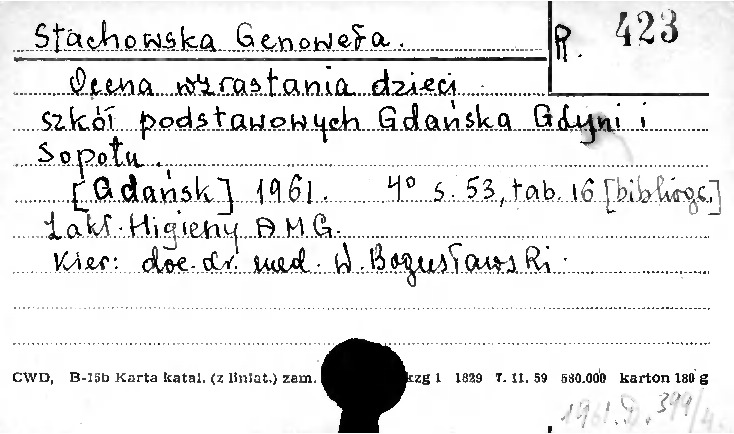 Stachowska Genowefa.
R. 423
Ocena wzrastania dzieci
szkół podstawowych Gdańska Gdyni i
Sopotu.
[Gdańsk] 1961. 4° s. 53, tab. 16 [bibliogr.]
Zakł. Higieny AMG.
Kier: doc. dr. med. W. Bogusławski.
CWD, B-15b Karta katal. (z liniat.) zam. kzg 1 1829 7. 11. 59 580.000 karton 180 g
1961. D. 399/